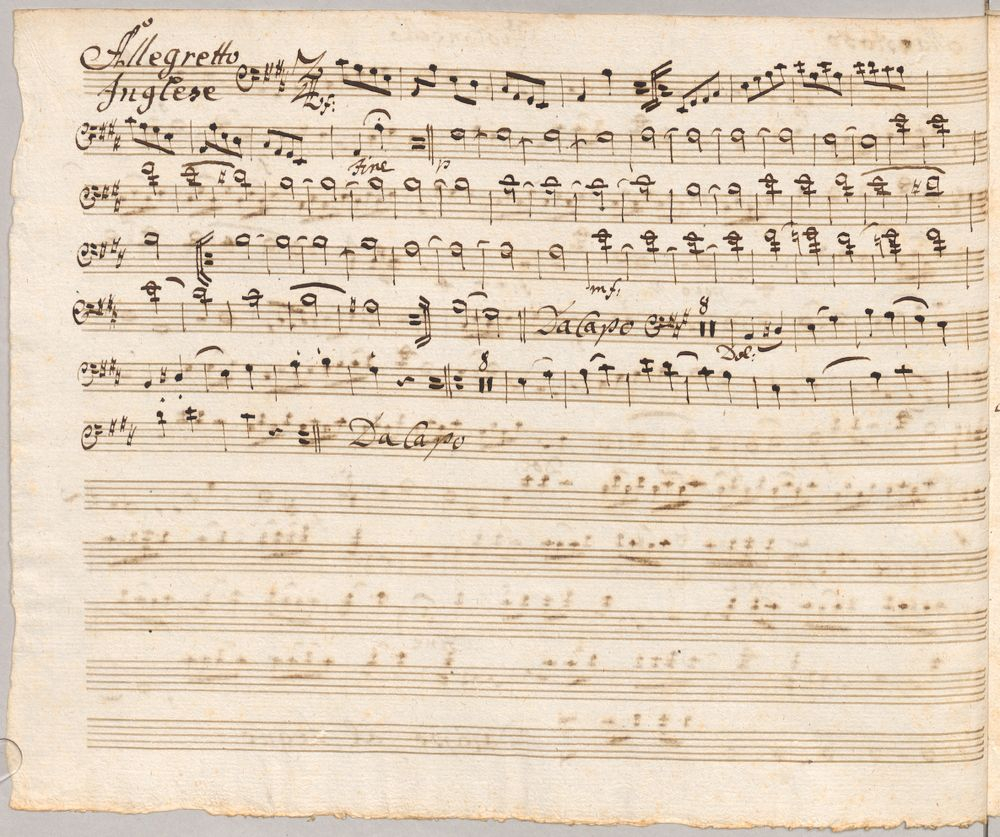 Allegretto
Inglese
2/4
sf:
fine p
mf:
Da Capo 8
Dol:
8
Da Capo